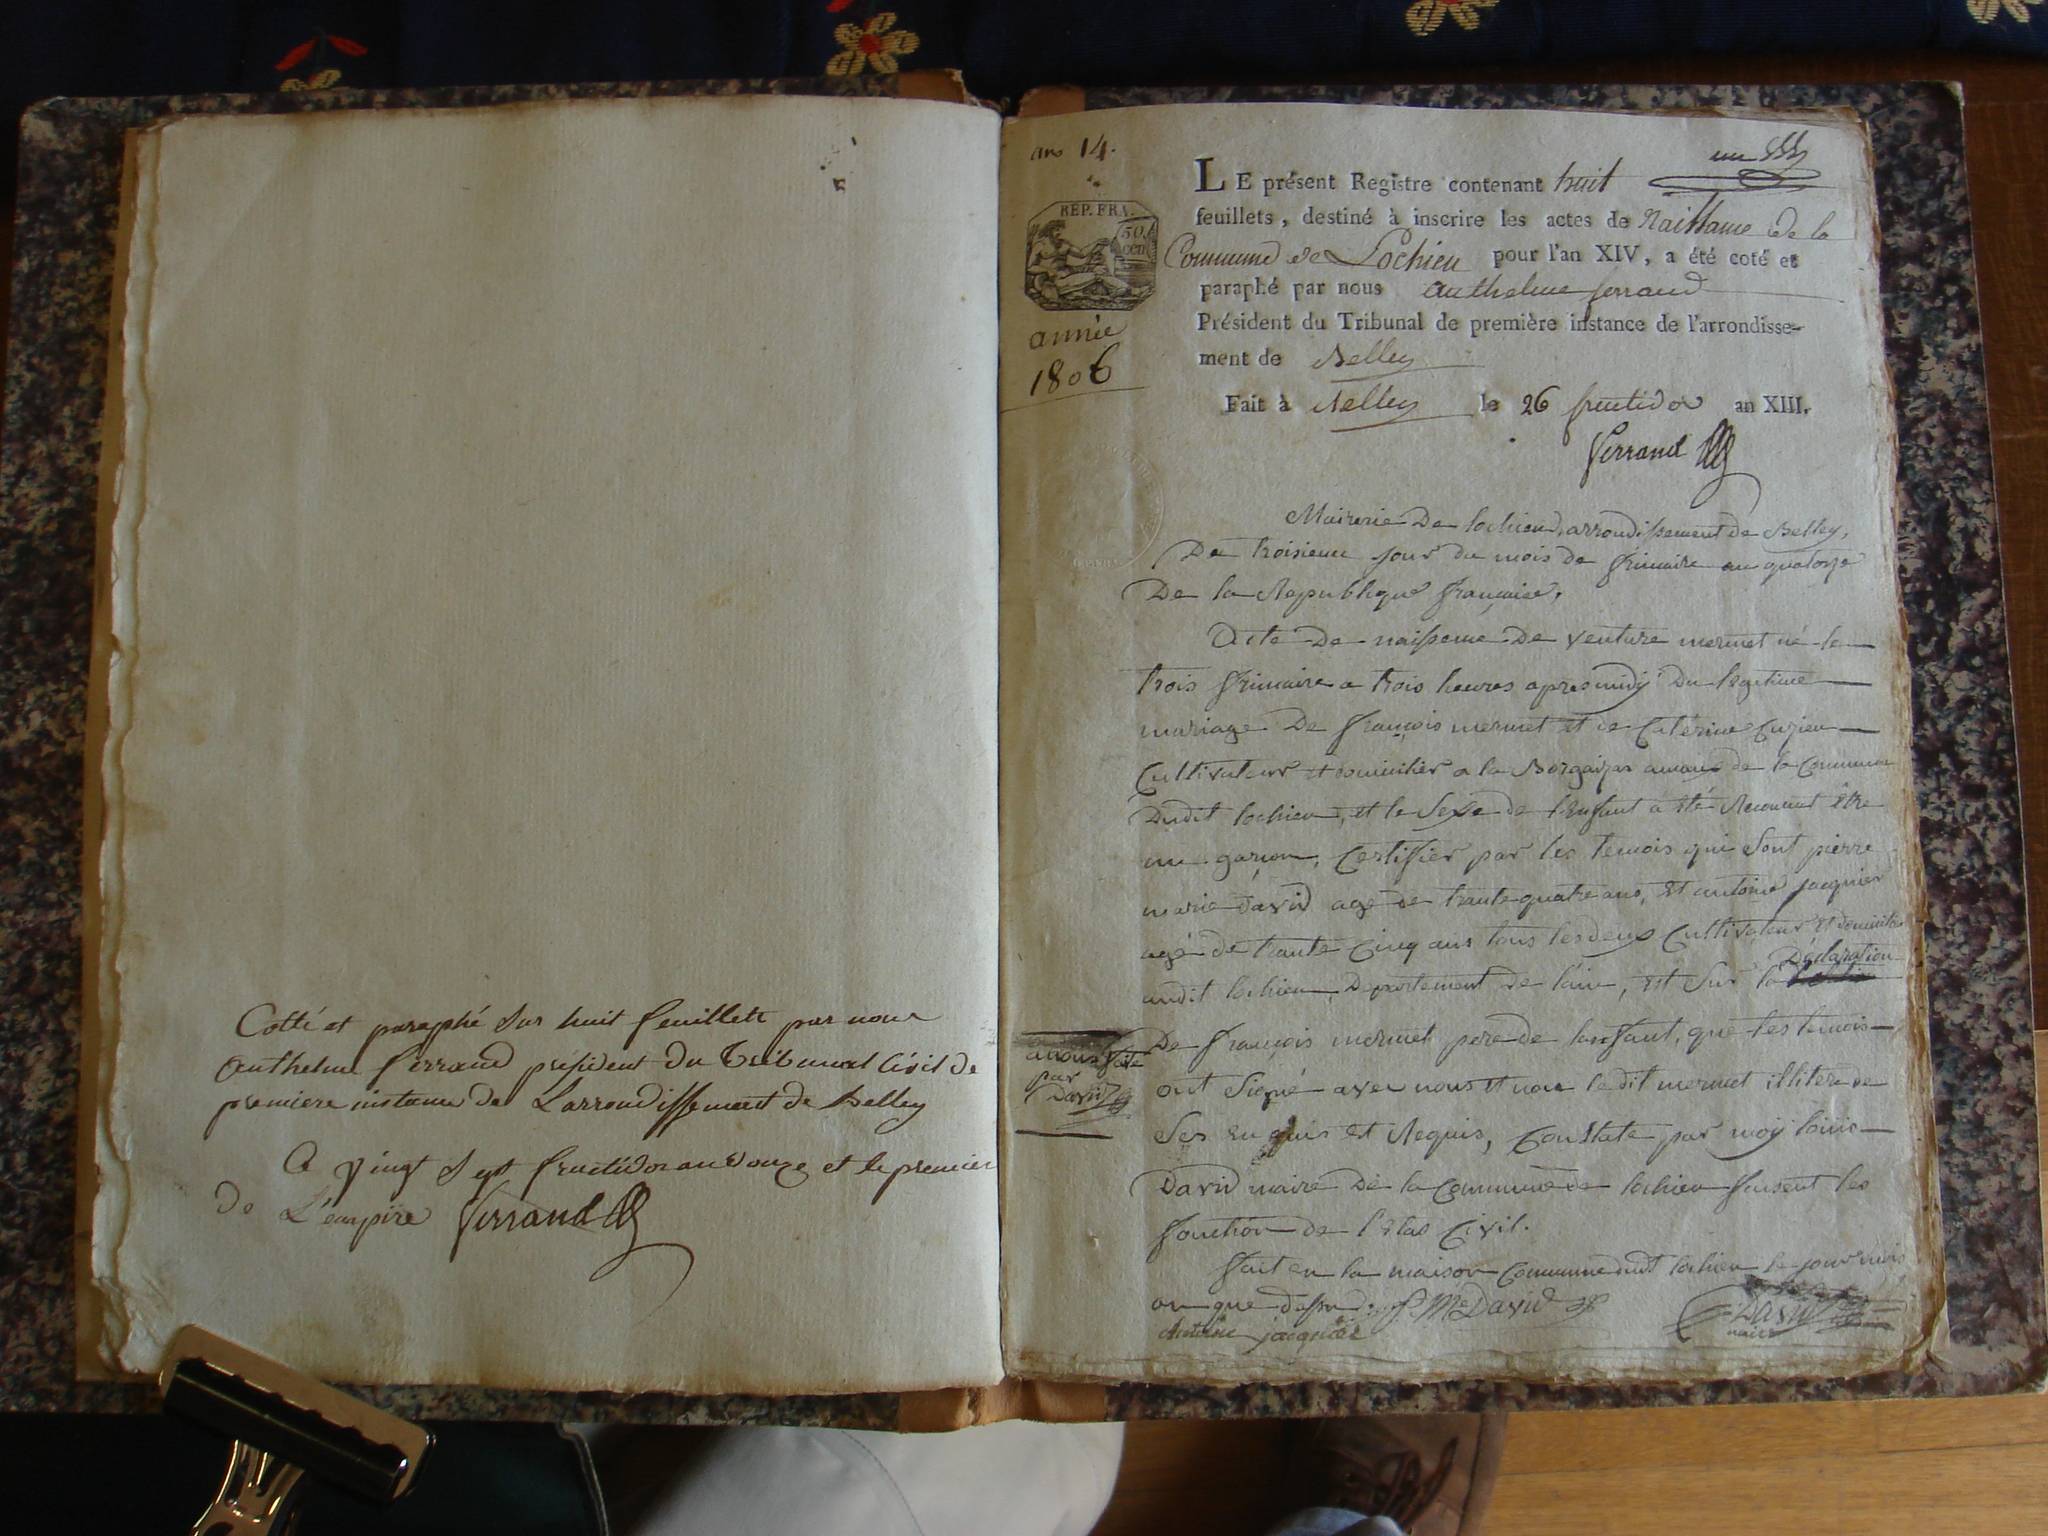 Cotté et paraphé sur huit feuillets par nous
Anthelme ferrand president du Tribunal Civil de
premiere instance de L'arrondissement de Belley
A vingt Sept fructidor an douze et le premier
De L'empire Ferrand
an 14.
REP. FRA.
50
cen
année
1806
un
LE présent Registre contenant huit
feuillets, destiné à inscrire les actes de Naissance de la
Commune de Lochieu pour l'an XIV, a été coté et
paraphé par nous anthelme ferrand
Président du Tribunal de première instance de l'arrondisse-
ment de Belley
Fait à Belley le 26 fructidor an XIII.
Ferrand
Mairerie De lochieu, arrondissement de Belley,
Du troisieme jour du mois de frimaire an quatorze
De la Republique française,
Acte De naissence De venture mermet né le
trois frimaire a trois heures apres midy Du legitime
mariage De françois mermet et de Caterine
Cultivateur et domicilier a la de la Commune
Dudit lochieu, et le Sexe de l'enfant a été Reconnut être
un garçon, Certifier par les temois qui Sont pierre
marie David agé de trante quatre ans, et antoine jacquier
agé de trante Cinq ans tous les deux Cultivateur et domicilié
audit lochieu, Departement de l'ain, et Sur la Déclaration
De françois mermet pere de lanfant, que les temois
ont Signé avec nous et non le dit mermet illitere de
Ses enquis et Requis, Constate par moy louis
David maire De la Commune de lochieu faisent les
fonction de l'etat Civil.
fait en la maison Commune dudit lochieu le jour mois
an que dessus P. Mie David
David
maire
Antoine jacquier
a nous faite
par
David